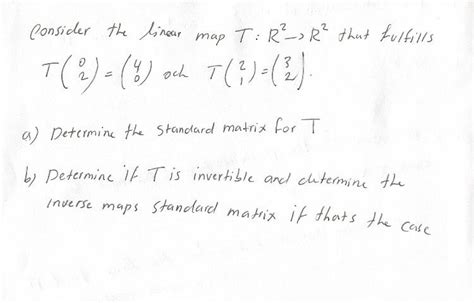 Consider the linear map T: R² → R² that fulfills
T(0 2) = (4 0) och T(2 1) = (3 2).
a) Determine the standard matrix for T
b) Determine if T is invertible and determine the
inverse maps standard matrix if thats the case